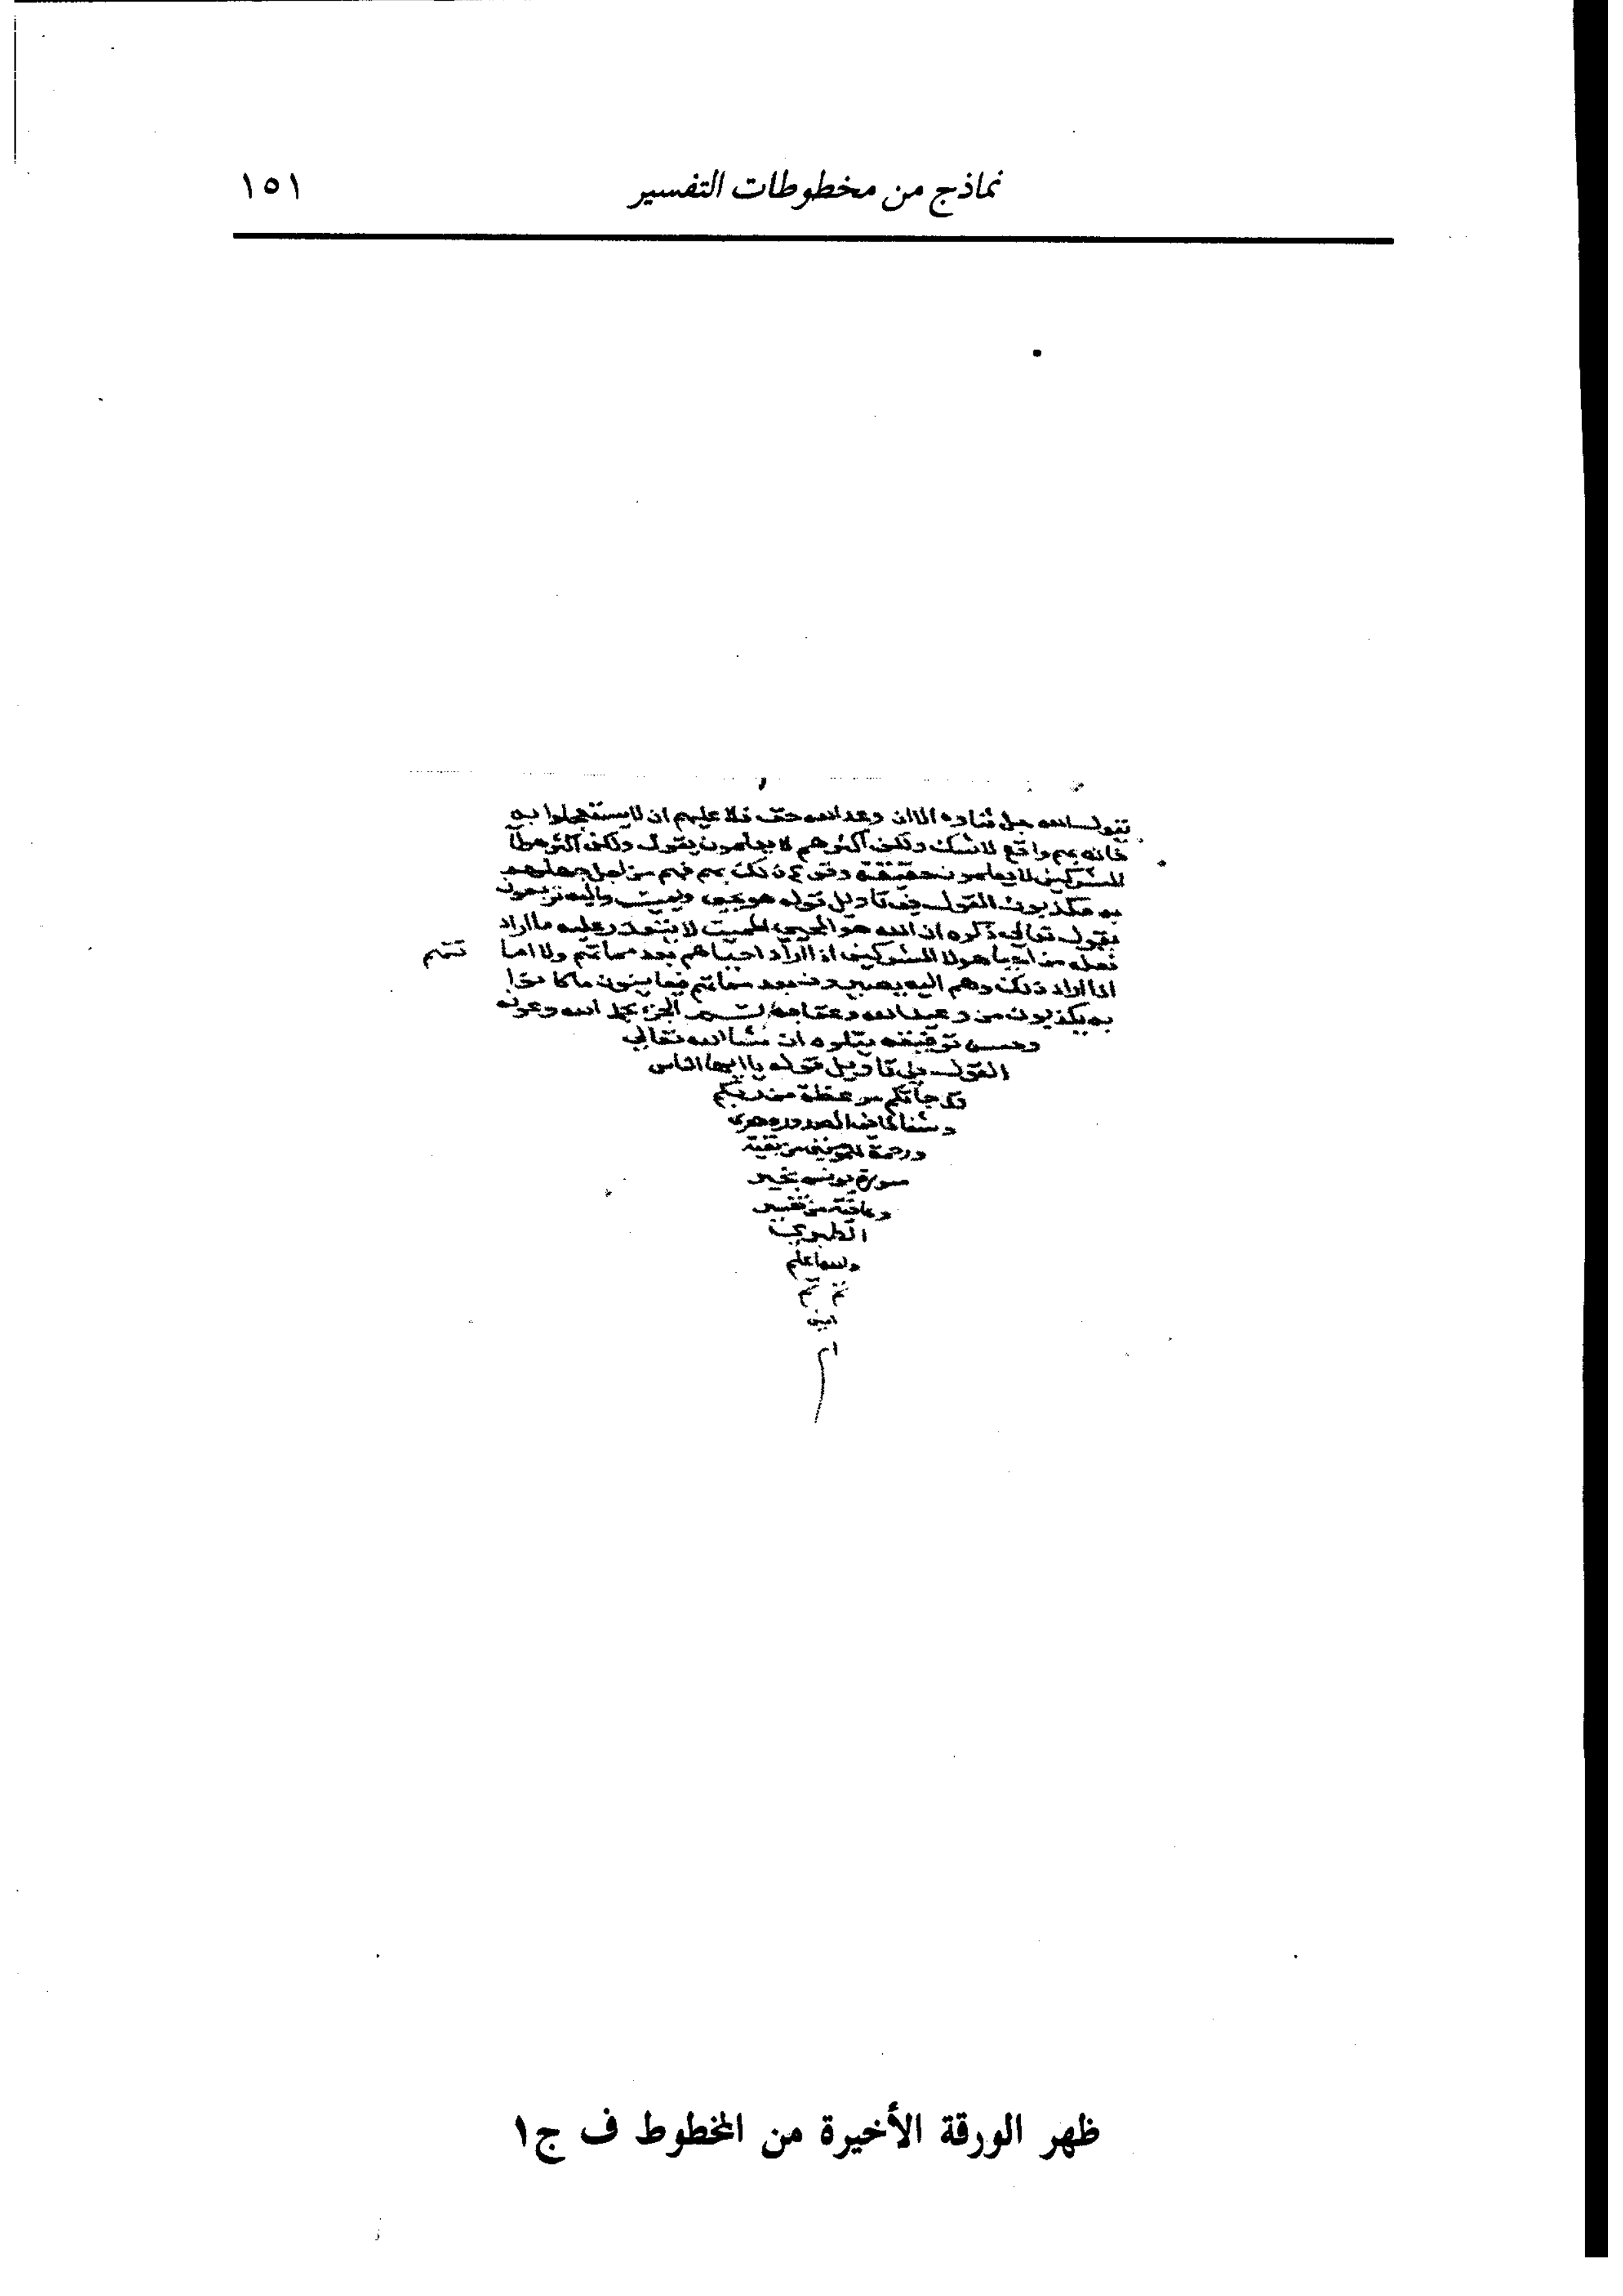 نماذج من مخطوطات التفسير ١٥١
يقول الله جل ثناوه الا ان وعد الله حق فلا عليهم ان لا يستعجلوا به
فانه بهم واقع لا شك ولكن اكثرهم لا يعلمون يقول ولكن اكثر هولا
المشركين لا يعلمون حقيقة وقوع ذلك بهم فهم من اجل جهلهم
به مكذبون القول في تاويل قوله هو يحيي ويميت واليه ترجعون
يقول تعالي ذكره ان الله هو المحيي المميت لا يتعذر عليه ما اراد
فعله من احيا هولا المشركين اذا اراد احياهم بعد مماتهم ولا اما تتهم
اذا اراد ذلك وهم اليه يصيرون بعد مماتهم فيعاينون ما كانوا
به يكذبون من وعيد الله وعقابه تم الجزء بحمد الله وعونه
وحسن توفيقه يتلوه ان شا الله تعالي
القول في تاويل قوله يا ايها الناس
قد جاتكم موعظة من ربكم
وشفا لما في الصدور وهدى
ورحمة للمومنين من بقية
سورة يونس بخير
وعافية من تفسير
الطبري
والله اعلم
تم تم
امين
ظهر الورقة الأخيرة من المخطوط ف ج١